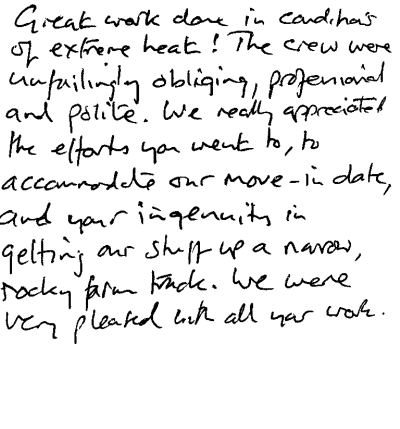 Great work done in conditions
of extreme heat! The crew were
unfailingly obliging, professional
and polite. We really appreciated
the efforts you went to, to
accommodate our move-in date,
and your ingenuity in
getting our stuff up a narrow,
rocky farm track. We were
very pleased with all your work.